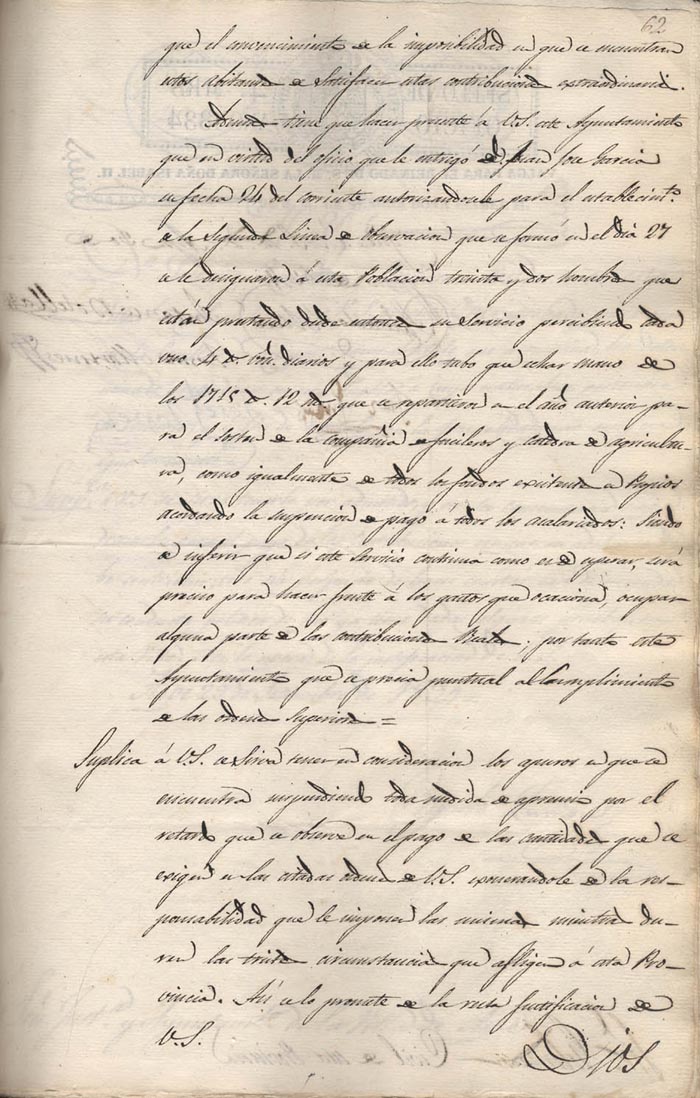 62
que el convencimiento de la imposibilidad en que se encuentran
estos abitantes de Satisfacer estas contribuciones extraordinarias.
Ademas tiene que hacer presente á V.S. este Ayuntamiento
que en virtud del oficio que le entregó Dn. Juan Jose Garcia
su fecha 24 del corriente autorizandole para el establecimto.
de la Segunda Linea de Observacion que se formó en el dia 27
se le designaron á esta Poblacion treinta y dos hombres que
estan prestando desde entonces su Servicio percibiendo cada
uno 4 rs. vn. diarios y para ello tubo que echar mano de
los 1715 rs. 12 ms que se repartieron en el año anterior pa-
ra el sosten de la compañia de fucileros y catedra de agricultu-
ra, como igualmente de todos los fondos existentes de Propios
acordando la suspencion de pago á todos los asalariados: Siendo
de inferir que si este Servicio continua como es de esperar, será
preciso para hacer frente á los gastos que ocaciona, ocupar
alguna parte de las contribuciones Reales; por tanto este
Ayuntamiento que se precia puntual al Cumplimiento
de las ordenes Superiores =
Suplica á V.S. se Sirva tener en consideracion los apuros en que se
encuentra suspendiendo toda medida de apremio por el
retardo que se observe en el pago de las cantidades que se
exigen en las citadas ordenes de V.S. exonerandole de la res-
ponsabilidad que le imponen las mismas mientras du-
ren las tristes circunstancias que afligen á esta Pro-
vincia. Asi se lo promete de la recta justificacion de
V.S.
Dios